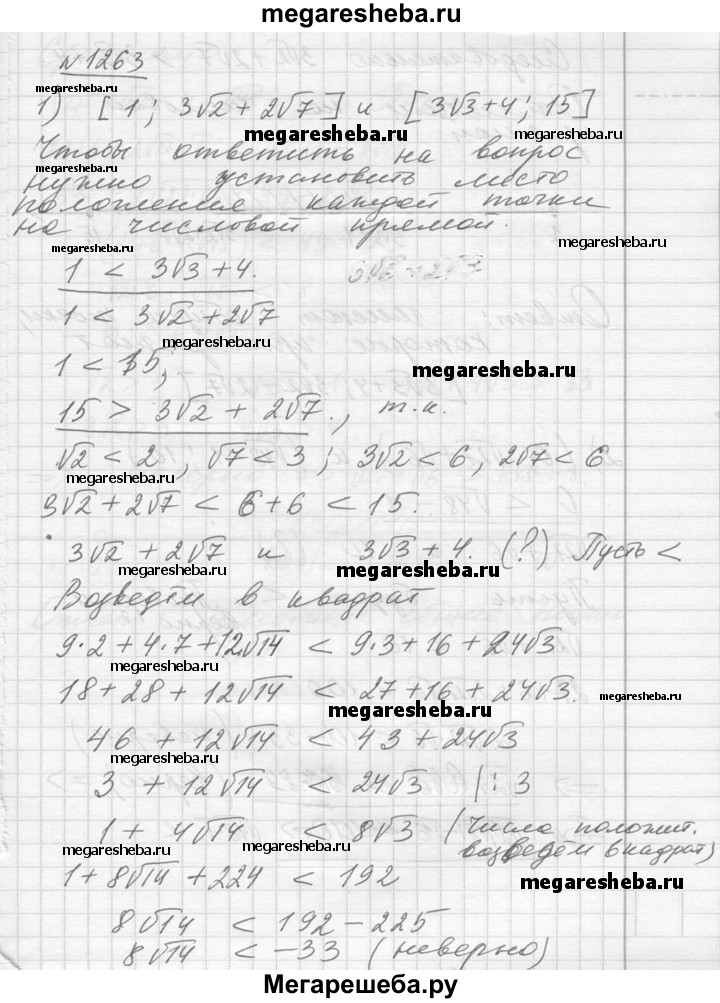 megaresheba.ru
№1263
megaresheba.ru
1) [1; 3√2 + 2√7] и [3√3+4; 15]
megaresheba.ru megaresheba.ru
Чтобы ответить на вопрос
megaresheba.ru
нужно установить место
положение каждой точки
на числовой прямой.
megaresheba.ru
megaresheba.ru
1 < 3√3+4.
1 < 3√2+2√7
megaresheba.ru
1 < 15,
megaresheba.ru
15 > 3√2 + 2√7., т.к.
√2 < 2, √7 < 3; 3√2 < 6, 2√7 < 6
megaresheba.ru
3√2+2√7 < 6+6 < 15.
3√2+2√7 и 3√3+4. (?) Пусть <
megaresheba.ru megaresheba.ru
Возведём в квадрат
9·2+4·7+12√14 < 9·3+16+24√3
megaresheba.ru
18+28+12√14 < 27+16+24√3.
megaresheba.ru
megaresheba.ru
46+12√14 < 43+24√3
megaresheba.ru
3 + 12√14 < 24√3 |: 3
1 + 4√14 < 8√3 (Числа положит.
возведём в кадрат)
megaresheba.ru megaresheba.ru
1+8√14+224 < 192
megaresheba.ru
8√14 < 192-225
8√14 < -33 (неверно)
megaresheba.ru
Мегарешеба.ру